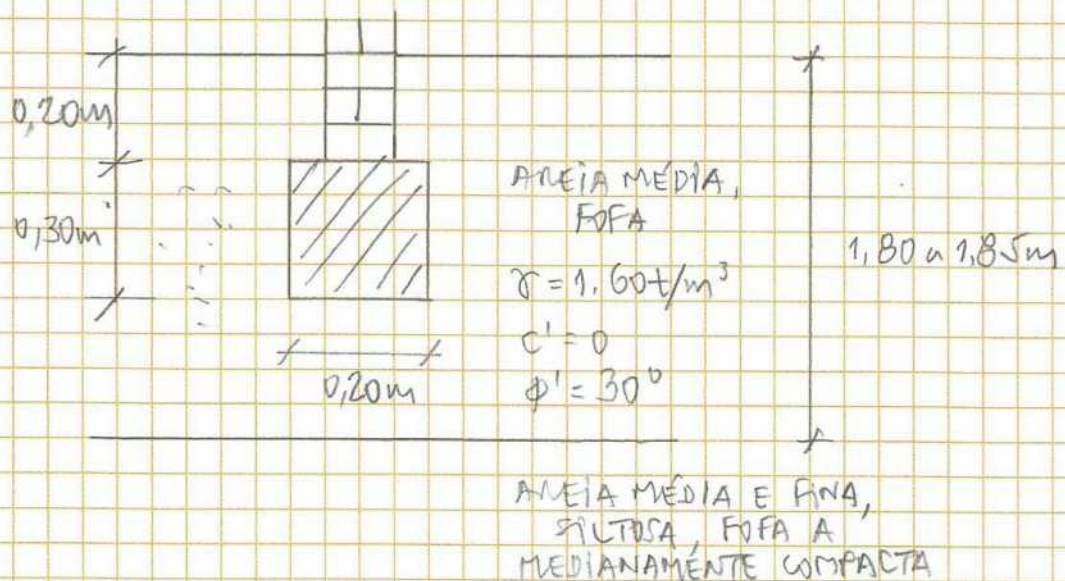 0,20m
0,30m
0,20m
AREIA MÉDIA,
FOFA
γ = 1.60t/m³
C' = 0
φ' = 30°
1,80 a 1,85m
AREIA MÉDIA E FINA,
SILTOSA, FOFA A
MEDIANAMÉNTE COMPACTA